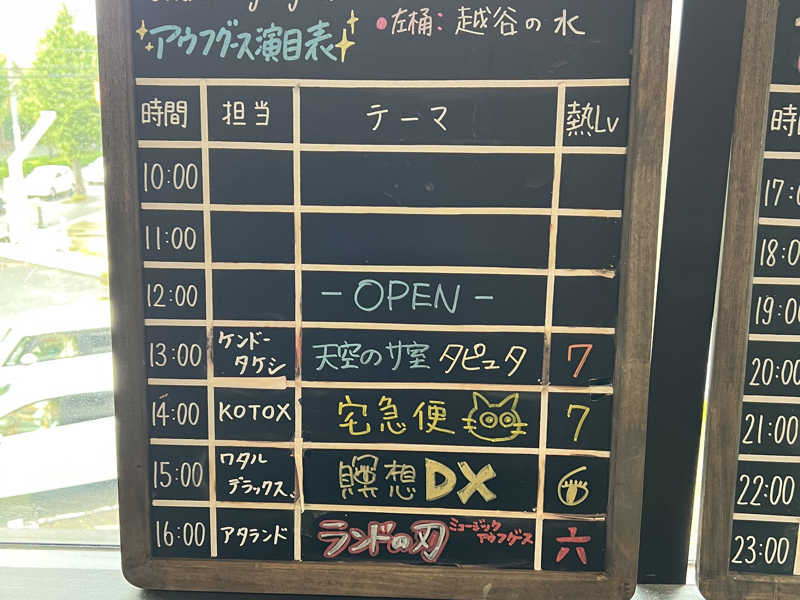 ●左桶：越谷の水
アウフグース演目表
時間 担当 テーマ 熱Lv
10:00
11:00
12:00 -OPEN-
13:00 ケンドー タケシ 天空のサ室 タピュタ 7
14:00 KOTOX 宅急便 7
15:00 ワタル デラックス 瞑想DX 6
16:00 アタランド ランドの刃 ミュージック アウフグース 六
時
17:0
18:0
19:0
20:00
21:00
22:00
23:00